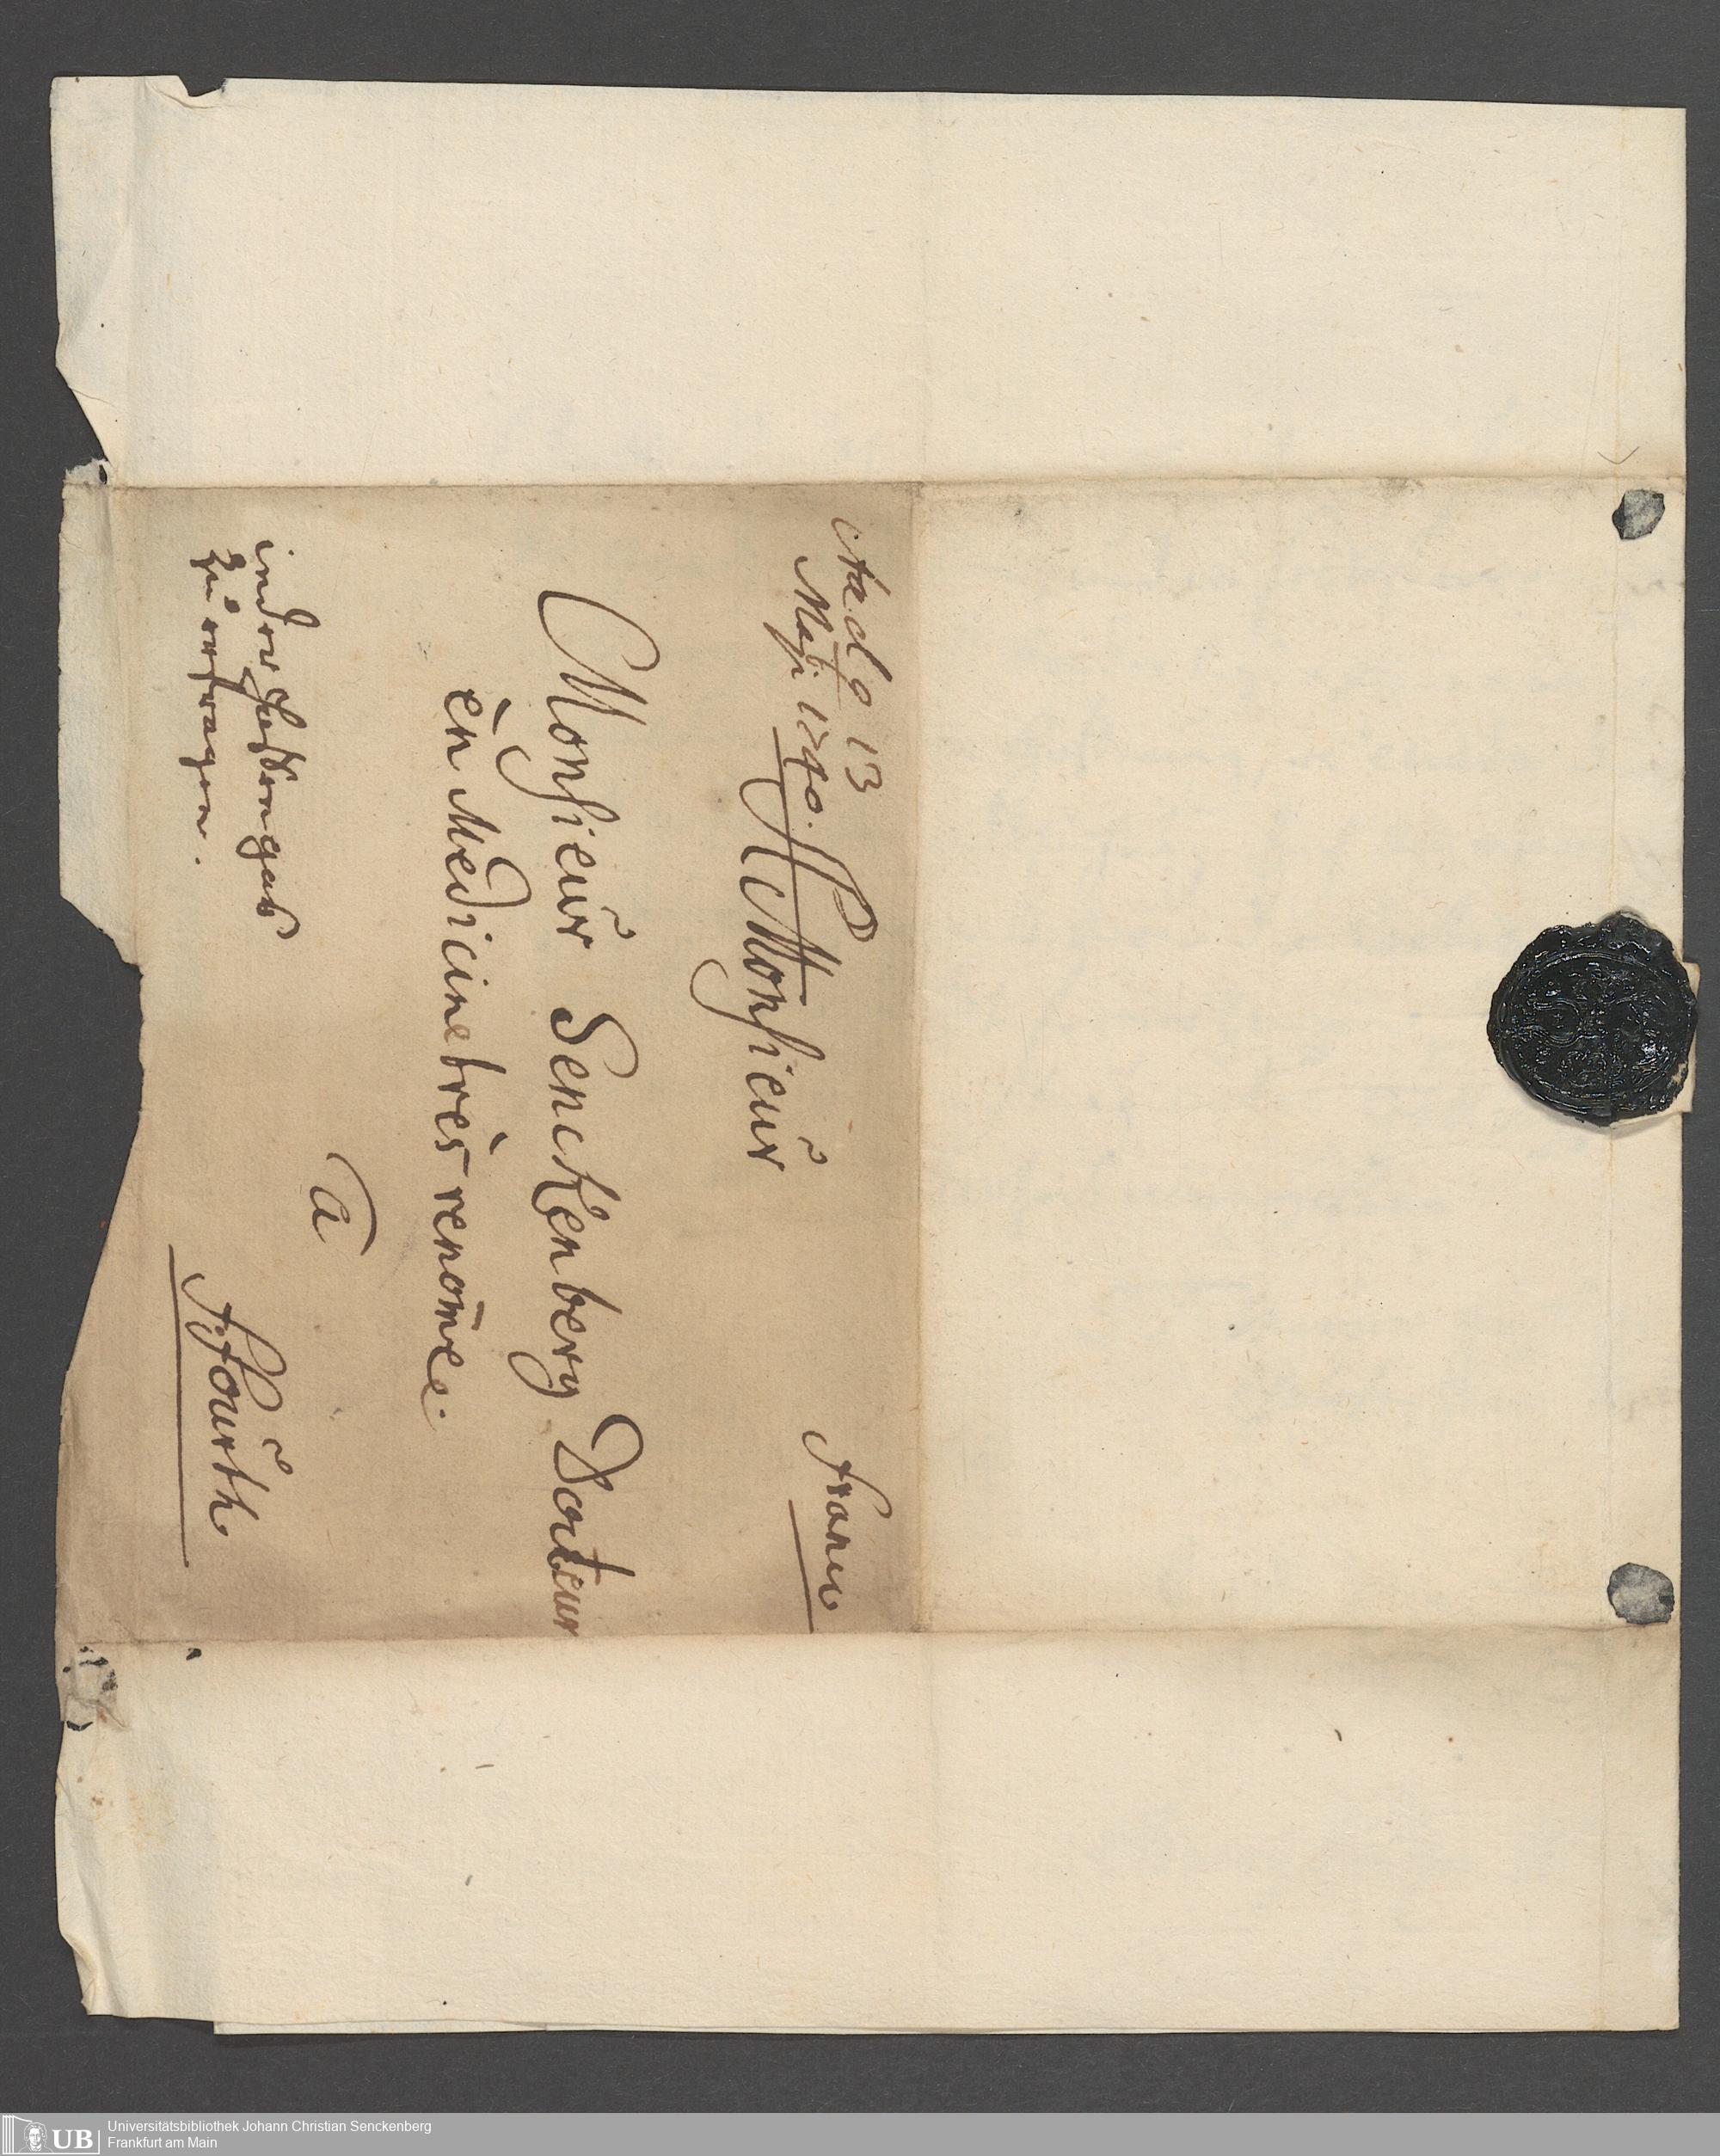 d. 13
Maji 1740.
A Monsieur
franco
Monsieur Senckenberg Docteur
en Medicine très renom̄e.
a
Ffourth
in der Hasengas
zu erfragen.
UB
Universitätsbibliothek Johann Christian Senckenberg
Frankfurt am Main